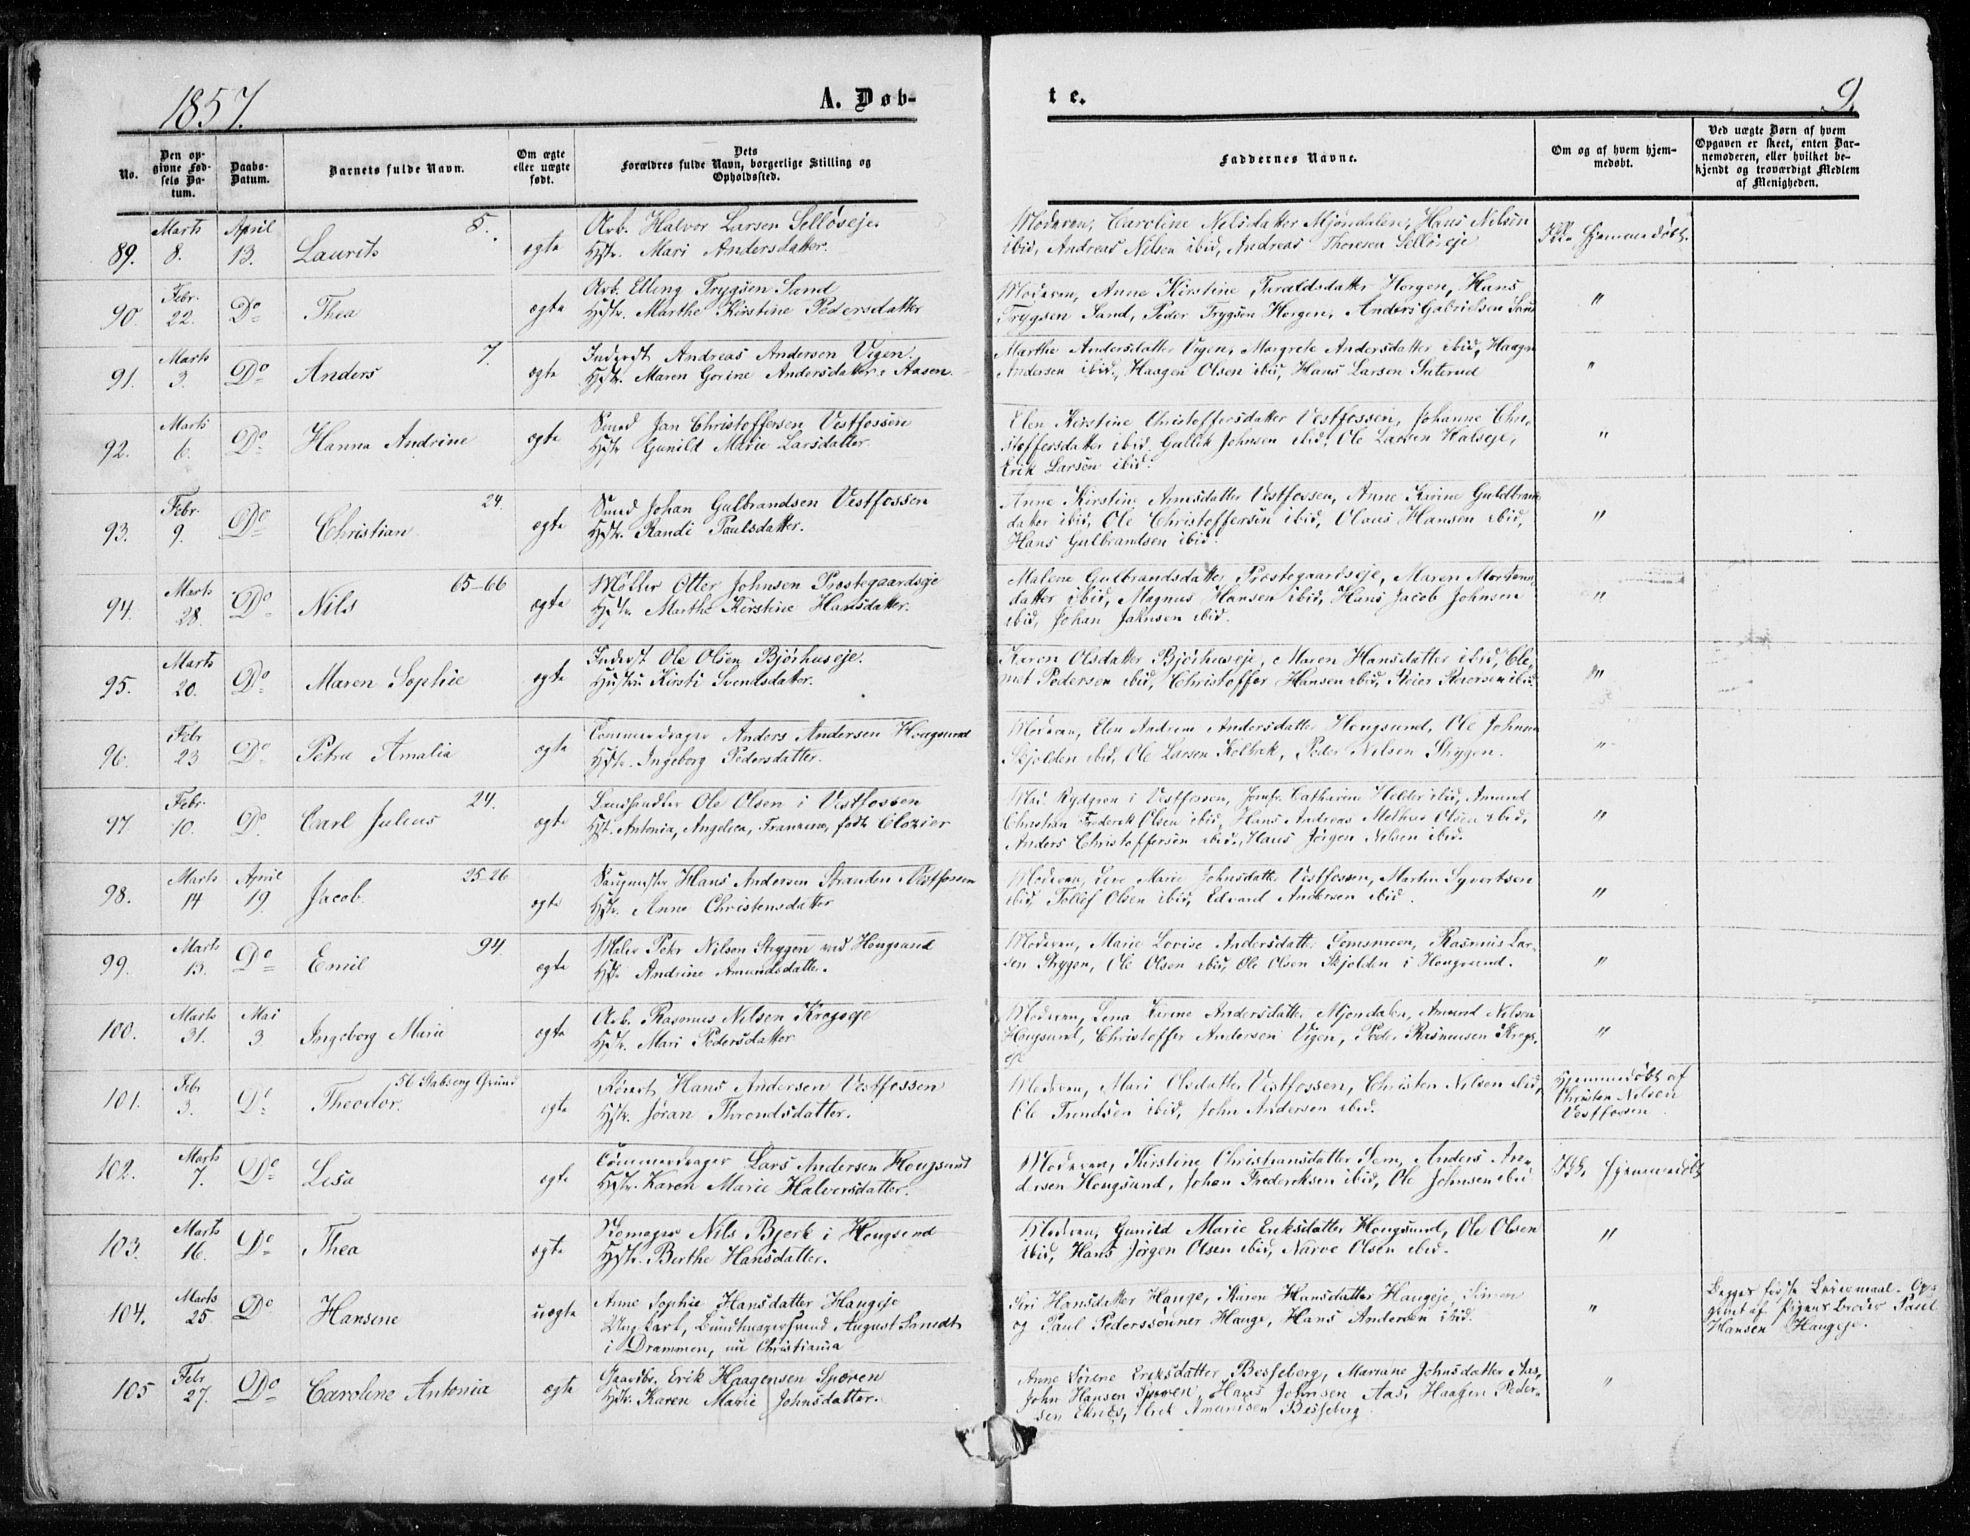 1857.
A. Døb-
te.
9.
No.
Den op-
givne Fød-
sels Da-
tum.
Daabs-
Datum.
Barnets fulde Navn.
Om ægte
eller uægte
født.
Dets
Forældres fulde Navn, borgerlige Stilling og
Opholdssted.
Faddernes Navne.
Om og af hvem hjem-
medøbt.
Ved uægte Børn af hvem
Opgaven er skeet, enten Bar-
nemoderen, eller hvilket be-
kjendt og troværdigt Medlem
af Menigheden.
89. Marts 8. April 13. Laurits 5. ægte
Arb. Halvor Larsen Selløseje.
Hstr. Mari Andersdatter.
Moderen, Caroline Nelsdatter Mjøndalen, Hans Nilsen
ibid, Andreas Nilsen ibid, Andreas Thoresen Selløseje
Ikke hjemmedøbt.
90. Febr. 22. Do Thea ægte
Arb. Elling Trygsen Sand
Hstr. Marthe Kirstine Pedersdatter
Moderen, Anne Kirstine Taraldsdatter Horgen, Hans
Trygsen Sand, Peder Trygsen Horgen, Anders Gabrielsen Sand
"
91. Marts 3. Do Anders 7. ægte
Inderst Andreas Andersen Vigen.
Hstr. Maren Gorine Andersdatter Aasen.
Marthe Andersdatter Vigen, Margrete Andersdatter ibid, Haagen
Andersen ibid, Haagen Olsen ibid, Hans Larsen
"
92. Marts 6. Do Hanna Andrine ægte
Smed Jan Christoffersen Vestfossen
Hstr Gunild Marie Larsdatter
Elen Kirstine Christoffersdatter Vestfossen, Johanne Chri-
stoffersdatter ibid, Gullik Johnsen ibid, Ole Larsen
Erik Larsen ibid.
"
93. Febr. 9. Do Christian 24. ægte
Smed Johan Gulbrandsen Vestfossen
Hstr. Randi Paulsdatter.
Anne Kirstine Arnesdatter Vestfossen, Anne Karine Guldbrands
datter ibid, Ole Christoffersen ibid, Olaus Hansen ibid,
Hans Gulbrandsen ibid.
"
94. Marts 28. Do Nils 65-66 ægte
Møller Otter Johnsen Præstegaardseje
Hstr. Marthe Kirstine Hansdatter.
Malene Gulbrandsdatter Præstegaardseje, Maren Mortens-
datter ibid, Magnus Hansen ibid, Hans Jacob Johnsen
ibid, Johan Johnsen ibid.
"
95. Marts 20. Do Maren Sophie ægte
Inderst Ole Olsen Bjørhuseje.
Hustru Kirsti Svendsdatter.
Karen Olsdatter Bjørhuseje, Maren Hansdatter ibid, Cle-
met Pedersen ibid, Christoffer Hansen ibid, ibid.
"
96. Febr 23 Do Petra Amalia ægte
Tømmerdrager Anders Andersen Hougsund
Hstr. Ingeborg Pedersdatter.
Moderen, Elen Andrea Andersdatter Hougsund, Ole Johnsen
Skjolden ibid, Ole Larsen Kolbræk, Peder Nilsen Stryggen.
"
97 Febr. 10. Do. Carl Julius 24. ægte
Landhandler Ole Olsen i Vestfossen
Hst. Antonia, Angelica, Franzena, født Clozier
Mad. Rydgren i Vestfossen, Jomfr. Catharine Holder ibid, Amund
Christian Frederik Olsen ibid, Hans Andreas Melhus Olsen ibid,
Anders Christoffersen ibid, Hans Jørgen Nilsen ibid.
"
98. Marts 14 April 19. Jacob. 25-26 ægte
Saugmester Hans Andersen Stranden Vestfossen
Hstr. Anne Christensdatter
Moderen, Lise Marie Johnsdatter Vestfossen, Martin Syvertsen
ibid, Tollef Olsen ibid, Edvard Andersen ibid.
"
99. Marts 13. Do Emil 94. ægte
Maler Peter Nilsen Stryggen ved Hougsund
Hstr Andrine Amundsdatter.
Moderen, Marie Lovise Andersdatt. Semsmoen, Rasmus Lar-
sen Stryggen, Ole Olsen ibid, Ole Olsen Skjolden i Hougsund.
"
100. Marts 31. Mai 3 Ingeborg Marie ægte
Arb. Rasmus Nilsen Krogseje
Hstr. Mari Pedersdatter
Moderen, Lena Karine Andersdatter Mjøndalen, Amund Nilsen
Hougsund, Christoffer Andersen Vigen, Peder Rasmussen Krogs-
eje
"
101. Febr 3. Do Theodor. 56 Stabseng Grund ægte
Hans Andersen Vestfossen
Hstr. Jøran Throndsdatter.
Moderen, Mari Olsdatter Vestfossen, Christen Nilsen ibid,
Ole Trondsen ibid, John Andersen ibid.
Hjemmedøbt af
Christen Nilsen
Vestfossen
102. Marts 7. Do Lisa ægte
Tømmerdrager Lars Andersen Hougsund
Hstr. Karen Marie Halversdatter.
Moderen, Kirstine Christiansdatter Sem, Anders An-
dersen Hougsund, Johan Frederiksen ibid, Ole Johnsen ibid
Ikke hjemmedøbt
103. Marts 16. Do Thea ægte
Nils Bjerk i Hougsund
Hstr. Berthe Hansdatter.
Moderen, Gunild Marie Eriksdatter Hougsund, Ole Olsen
ibid, Hans Jørgen Olsen ibid, Narve Olsen ibid.
"
104. Marts 25 Do Hansine uægte
Anne Sophie Hansdatter Haugeje
Ungkarl, Bundtmagersvend August Sandt
i Drammen, nu Christiania
Siri Hansdatter Hauge, Karen Hansdatter Haugeje, Simen
og Paul Pederssønner Hauge, Hans Andersen ibid.
"
Begges første Leiermaal. Op-
givet af Pigens Broder Paul
Hansen Haugeje.
105 Febr 27. Do Caroline Antonia ægte
Gaardbr. Erik Haagensen Sporen
Hstr. Karen Marie Johnsdatter.
Anne Sørine Eriksdatter Besseberg, Mariane Johnsdatter Aas,
John Hansen Sporen, Hans Johnsen Aas, Haagen Peder-
sen Erik Amundsen Besseberg
"